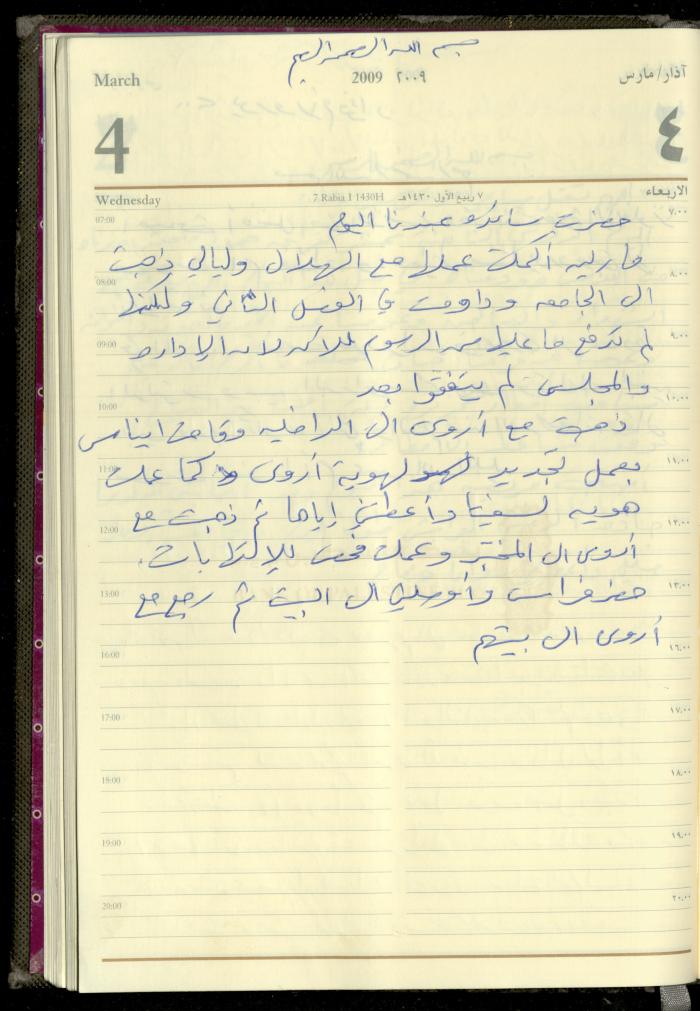 بسم الله الرحمن الرحيم
March 2009 ٢٠٠٩ آذار/مارس
4 ٤
Wednesday 7 Rabia I 1430H ٧ ربيع الأول ١٤٣٠هـ الاربعاء
07:00 ٧,٠٠
حضرت ساندرو عندنا اليوم
مارليه أكملت عملها مع الهلال وليالي ذهبت
08:00 ٨,٠٠
الى الجامعه وداومت في الفصل الثاني ولكنها
09:00 ٩,٠٠
لم تدفع ما عليها من الرسوم لأن الإداره
والمجلس لم يتفقوا بعد
10:00 ١٠,٠٠
ذهبت مع أروى الى الداخليه وقامت ايناس
11:00 ١١,٠٠
بعمل تجديد لهوية أروى كما عملت
هويه لسفيتا وأعطتني إياها ثم ذهبت مع
12:00 ١٢,٠٠
أروى الى المختبر وعملت فحص للإلتهابات.
13:00 ١٣,٠٠
حضر فراس وأوصلني الى البيت ثم رجع مع
أروى الى بيتهم
16:00 ١٦,٠٠
17:00 ١٧,٠٠
18:00 ١٨,٠٠
19:00 ١٩,٠٠
20:00 ٢٠,٠٠